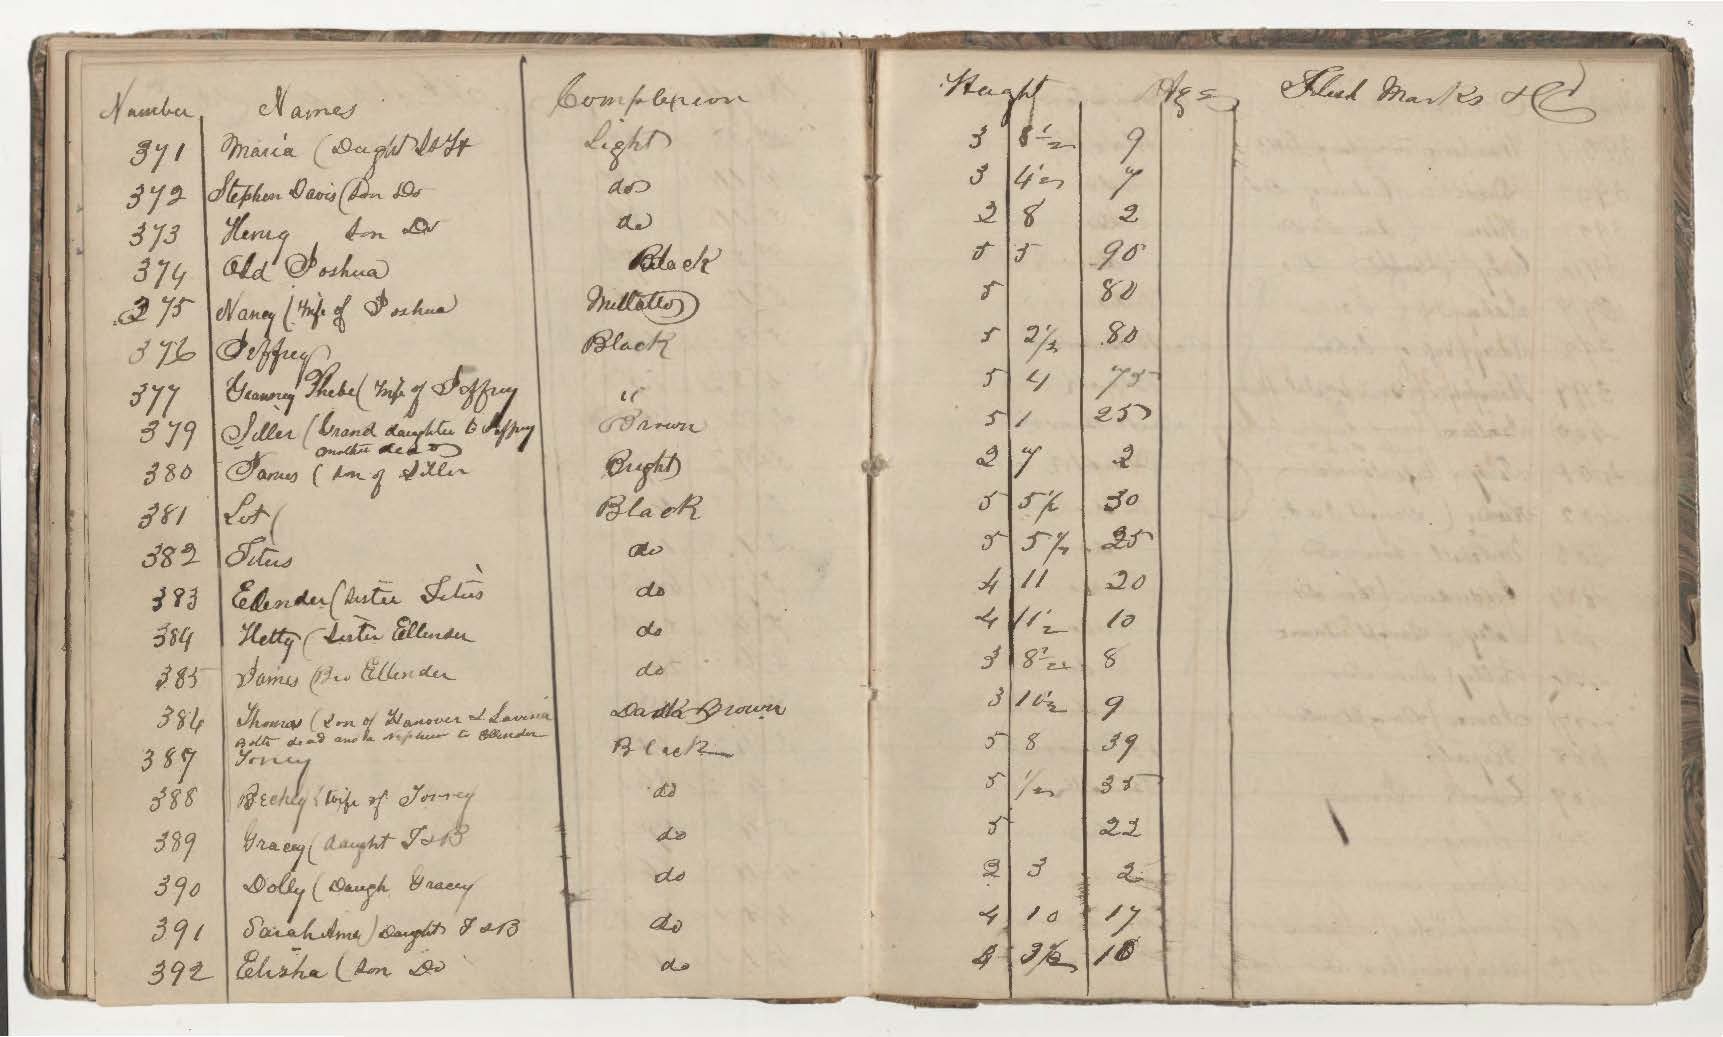 Number Names Complexion Height Age Flesh Marks & C
371 Maria (Daught S & H Light 3 8 1/2 9
372 Stephen Davis (Son Do do 3 4 1/2 7
373 Henry Son Do do 2 8 2
374 Old Joshua Black 5 5 90
375 Nancy (Wife of Joshua Mullatto 5 80
376 Jeffrey Black 5 2 1/2 80
377 Granny Phebe (Wife of Jeffrey " 5 4 75
379 Siller (Grand daughter to Jeffrey Brown 5 1 25
mother dead
380 James (Son of Siller Bright 2 7 2
381 Lot ( Black 5 5 1/2 30
382 Titus do 5 5 1/2 25
383 Ellender (Sister Titus do 4 11 20
384 Hetty (Sister Ellender do 4 11 1/2 10
385 James (Bro Ellender do 3 8 1/2 8
386 Thomas (Son of Hanover & Lavinia Dark Brown 3 10 1/2 9
Both dead and a nephew to Ellender
387 Toney Black 5 8 39
388 Beckey (Wife of Tonney do 5 1/2 35
389 Gracey (daught T & B do 5 22
390 Dolly (Daugh Gracey do 2 3 2
391 Sarah Ame) Daught T & B do 4 10 17
392 Elisha (Son Do do 4 3 1/2 10